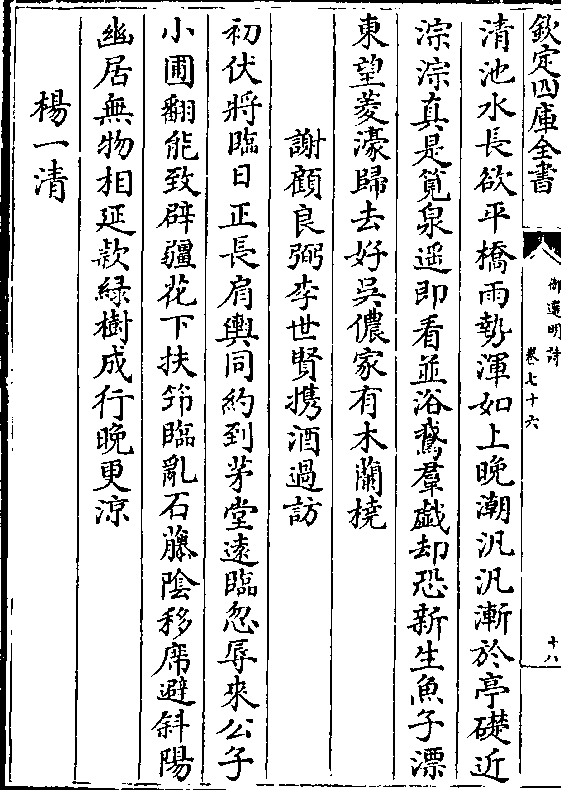 欽定四庫全書
御選明詩
卷七十六
十八
清池水長欲平橋雨勢渾如上晚潮汎汎漸於亭礎近
淙淙真是覓泉遥即看並浴鵞羣戯却恐新生魚子漂
東望菱濠歸去好吳儂家有木蘭橈
謝顧良弼李世賢携酒過訪
初伏將臨日正長肩輿同約到茅堂遠臨忽辱來公子
小圃翻能致辟疆花下扶笻臨亂石藤陰移席避斜陽
幽居無物相延欵緑樹成行晚更涼
楊一清